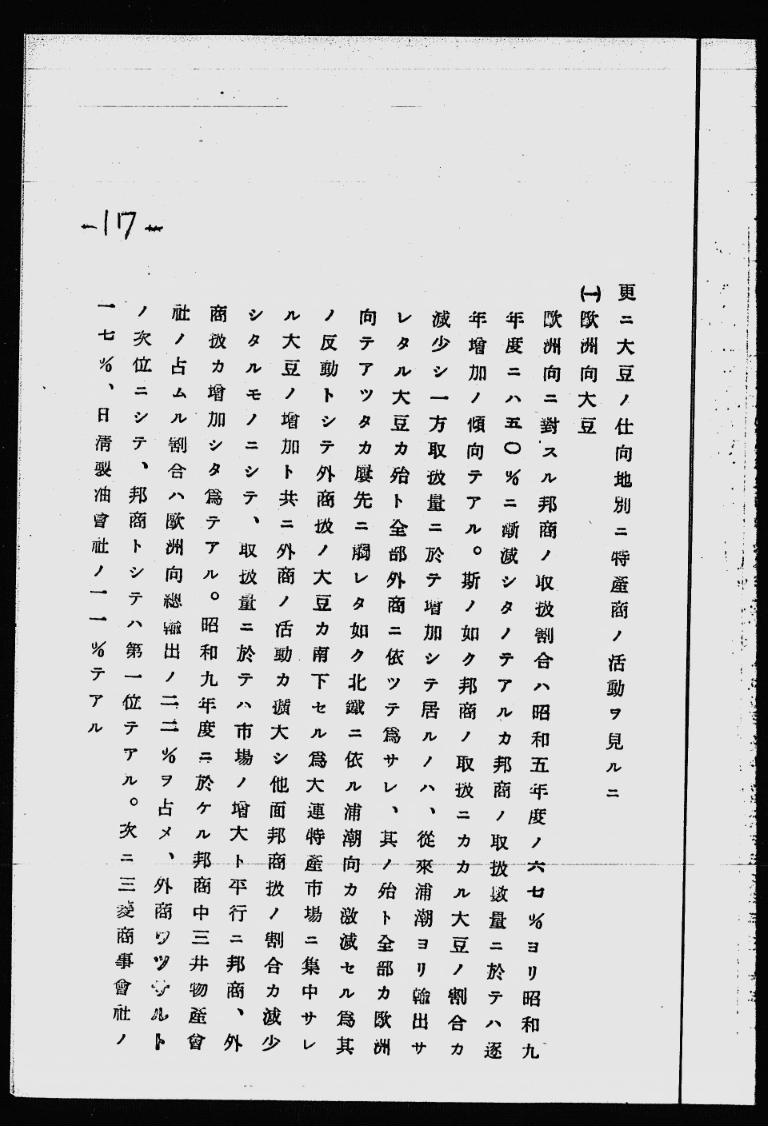 -17-
更ニ大豆ノ仕向地別ニ特產商ノ活動ヲ見ルニ
㈠歐洲向大豆
歐洲向ニ對スル邦商ノ取扱割合ハ昭和五年度ノ六七%ヨリ昭和九
年度ニハ五〇%ニ漸減シタノテアルカ邦商ノ取扱數量ニ於テハ逐
年增加ノ傾向テアル。斯ノ如ク邦商ノ取扱ニカカル大豆ノ割合カ
減少シ一方取扱量ニ於テ增加シテ居ルノハ、從來浦潮ヨリ輸出サ
レタル大豆カ殆ト全部外商ニ依ツテ爲サレ、其ノ殆ト全部カ歐洲
向テアツタカ屢先ニ觸レタ如ク北鐵ニ依ル浦潮向カ激減セル爲其
ノ反動トシテ外商扱ノ大豆カ南下セル爲大連特產市場ニ集中サレ
ル大豆ノ增加ト共ニ外商ノ活動カ擴大シ他面邦商扱ノ割合カ減少
シタルモノニシテ、取扱量ニ於テハ市場ノ增大ト平行ニ邦商、外
商扱カ增加シタ爲テアル。昭和九年度ニ於ケル邦商中三井物產會
社ノ占ムル割合ハ歐洲向總輸出ノ二二%ヲ占メ、外商ワツサルト
ノ次位ニシテ、邦商トシテハ第一位テアル。次ニ三菱商事會社ノ
一七%、日淸製油會社ノ一一%テアル